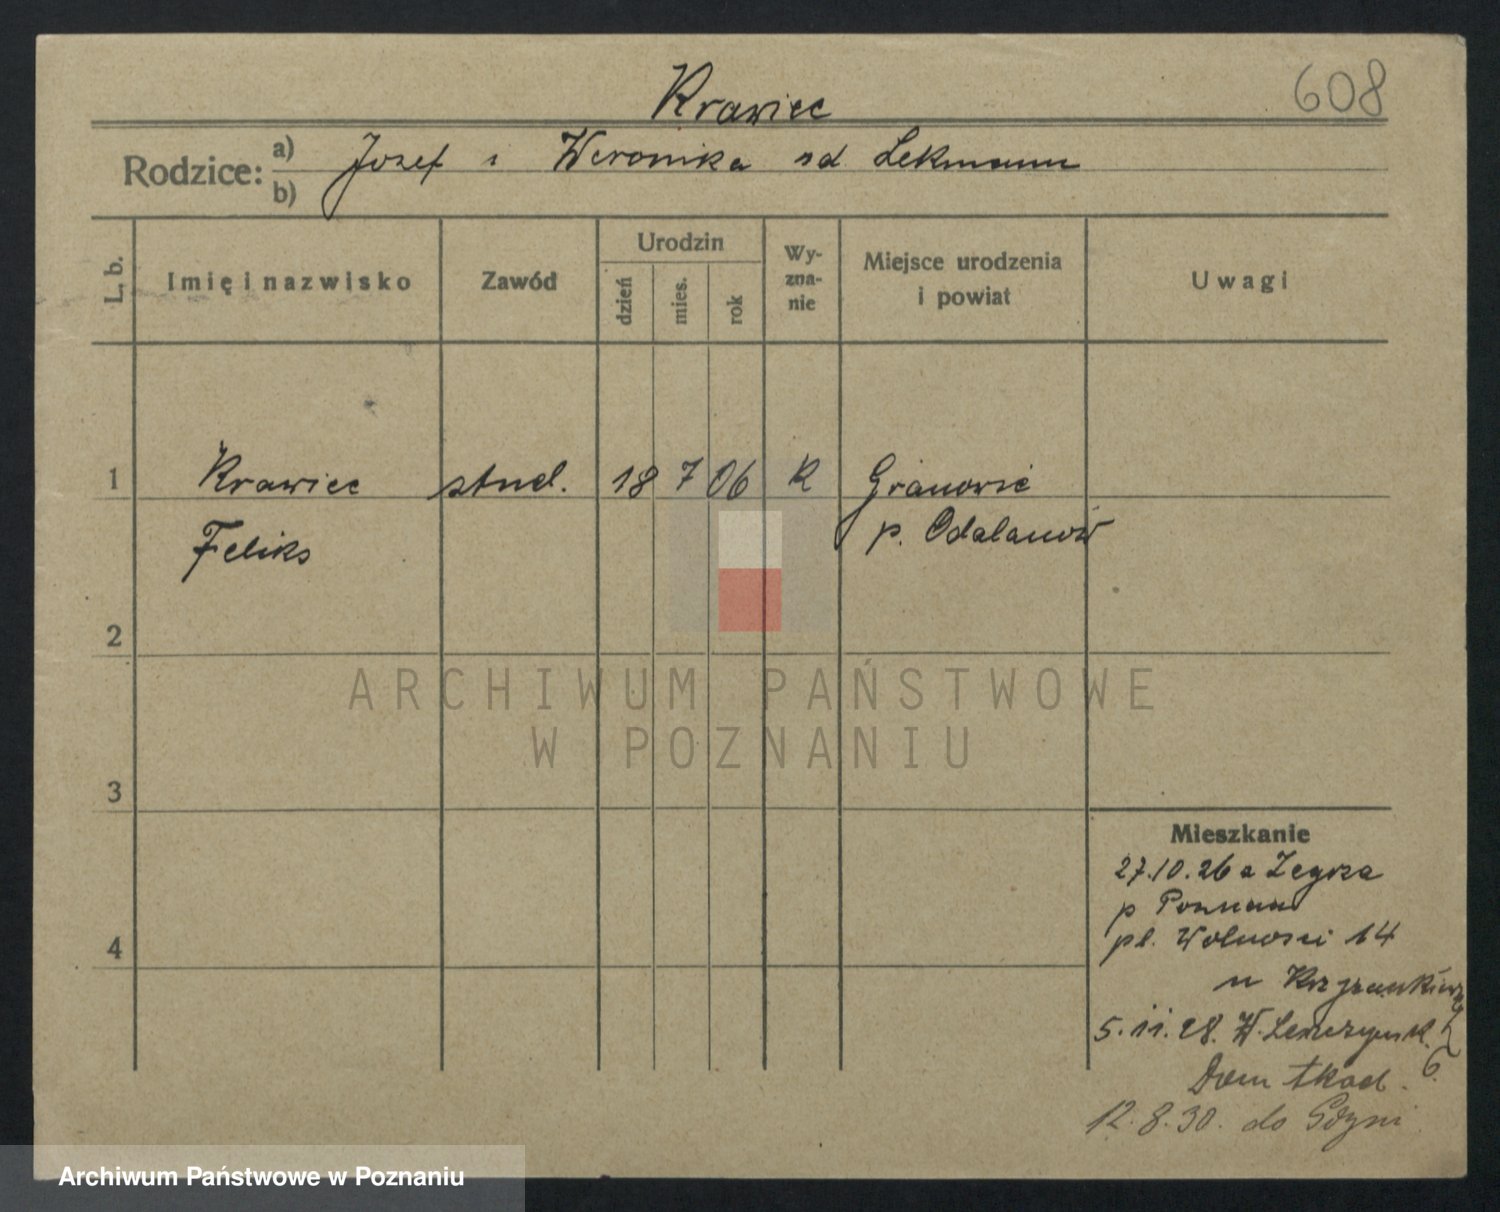 608
Krawiec
Rodzice: a) Jozef i Weronika sd Lekmann
b)
L. b. Imię i nazwisko Zawód Urodzin dzień mies. rok Wy-zna-nie Miejsce urodzenia i powiat Uwagi
1 Krawiec stud. 18 7 06 K Granowie
Feliks p. Odalanów
2
ARCHIWUM PAŃSTWOWE
W POZNANIU
3
Mieszkanie
27.10.26 a Zegrza
p Poznan
4 pl. Wolnosci 14
u
5.11.28. W.
Dom Akad. 6.
12.8.30. do Gdyni
Archiwum Państwowe w Poznaniu